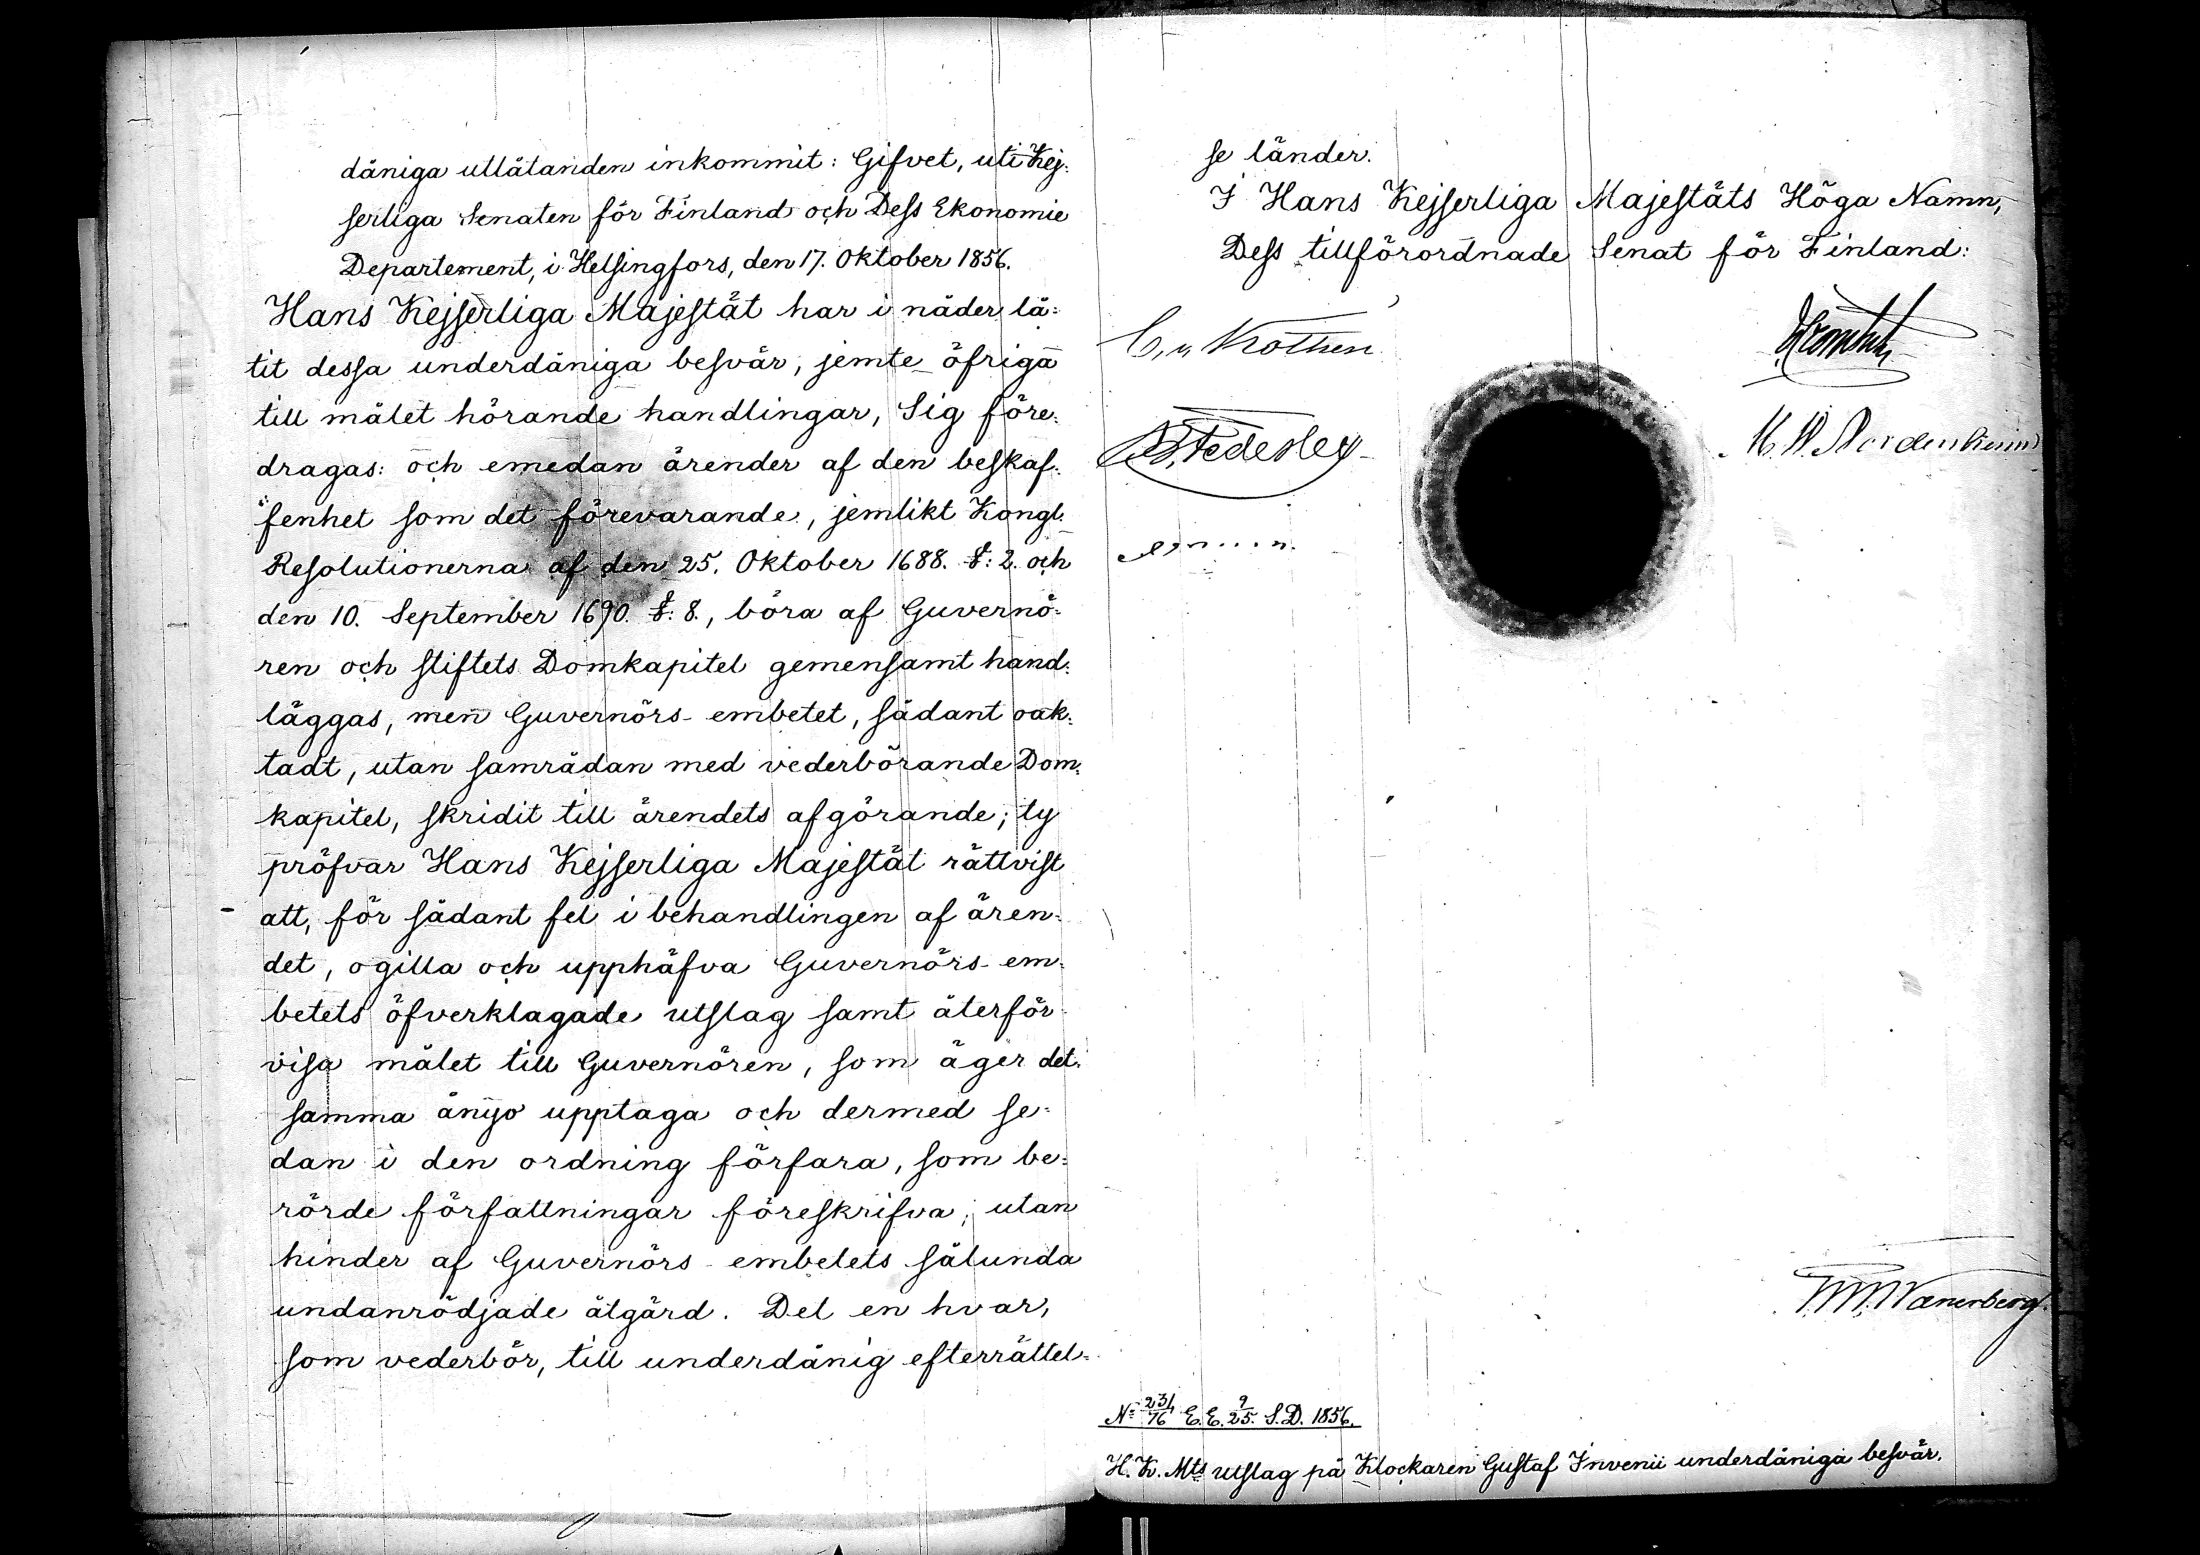 dåniga utlåtanden inkommit: Gifvet, uti Kej-
serliga Senaten för Finland och Dess Ekonomie
Departement, i Helsingfors, den 17. Oktober 1856.
Hans Kejserliga Majestät har i nåder lå-
tit dessa underdåniga besvär, jemte öfriga
till målet hörande handlingar, Sig före-
dragas: och emedan ärender af den beskaf-
fenhet som det förevarande, jemlikt Kongl.
Resolutionerna af den 25. Oktober 1688. §: 2. och
den 10. September 1690. §: 8., böra af Guvernö-
ren och stiftets Domkapitel gemensamt hand-
läggas, men Guvernörs-embetet, sådant oak-
tadt, utan samrådan med vederbörande Dom-
kapitel, skridit till ärendets afgörande; ty
pröfvar Hans Kejserliga Majestät rättvist
att, för sådant fel i behandlingen af ären-
det, ogilla och upphäfva Guvernörs-em-
betets öfverklagade utslag samt återför-
visa målet till Guvernören, som äger det-
samma ånyo upptaga och dermed se-
dan i den ordning förfara, som be-
rörde författningar föreskrifva; utan
hinder af Guvernörs-embetets sålunda
undanrödjade åtgärd. Det en hvar,
som vederbör, till underdånig efterrättel-
se länder.
I Hans Kejserliga Majestäts Höga Namn,
Dess tillförordnade Senat för Finland:
C. v Kothen
M. W. Nordenheim
W. Wanerberg.
No 231/76 E.E. 9/25. S.D. 1856.
H. K. Mts utslag på Klockaren Gustaf Invenii underdåniga besvär.